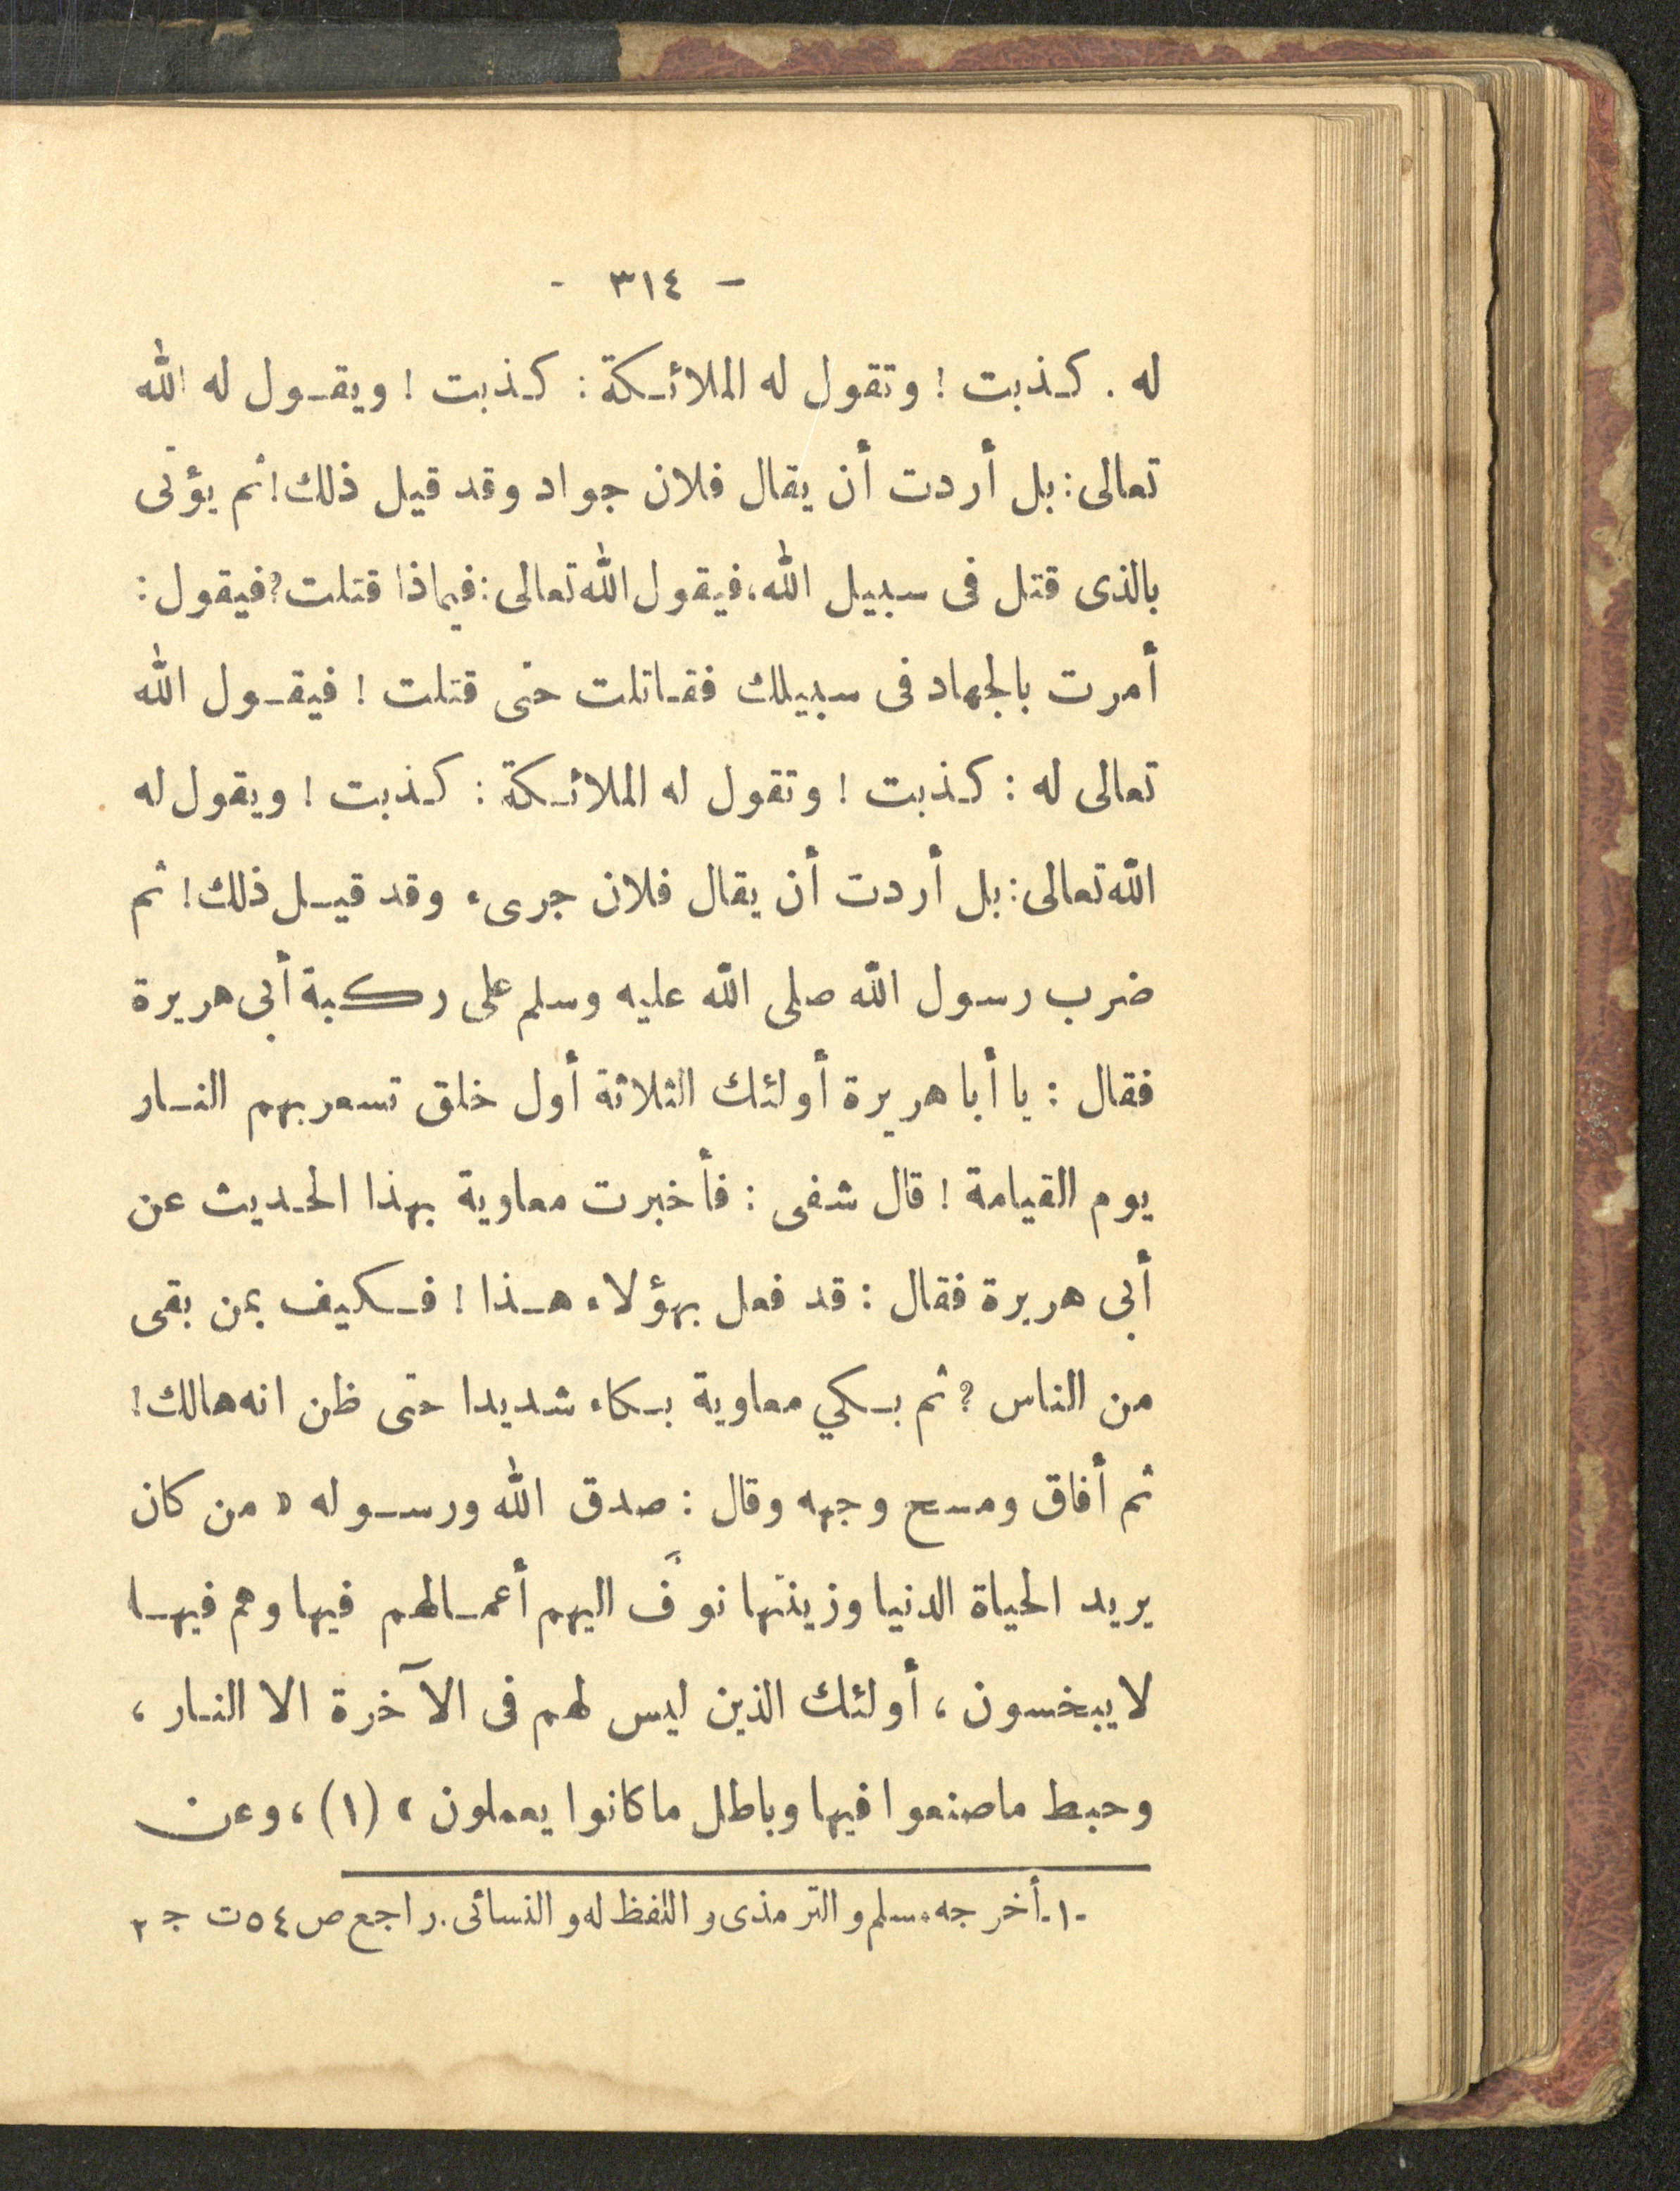 - ٣١٤ -
له . كذبت ! وتقول له الملائكة : كذبت ! ويقول له الله
تعالى : بل أردت أن يقال فلان جواد وقد قيل ذلك ! ثم يؤتى
بالذى قتل فى سبيل الله ، فيقول الله تعالى : فيماذا قتلت ؟ فيقول :
أمرت بالجهاد فى سبيلك فقاتلت حتى قتلت ! فيقول الله
تعالى له : كذبت ! وتقول له الملائكة : كذبت ! ويقول له
الله تعالى : بل أردت أن يقال فلان جرىء وقد قيل ذلك ! ثم
ضرب رسول الله صلى الله عليه وسلم على ركبة أبى هريرة
فقال : يا أبا هريرة أولئك الثلاثة أول خلق تسعر بهم النار
يوم القيامة ! قال شفى : فأخبرت معاوية بهذا الحديث عن
أبى هريرة فقال : قد فعل بهؤلاء هذا ! فكيف بمن بقى
من الناس ؟ ثم بكي معاوية بكاء شديدا حتى ظن انه هالك !
ثم أفاق ومسح وجهه وقال : صدق الله ورسوله « من كان
يريد الحياة الدنيا وزينتها نوَفِّ اليهم أعمالهم فيها وهم فيها
لا يبخسون ، أولئك الذين ليس لهم فى الآخرة الا النار ،
وحبط ما صنعوا فيها وباطل ما كانوا يعملون » (١) ، وعن
-١- أخرجه مسلم و الترمذى و اللفظ له و النسائى . راجع ص ٥٤ ت ج ٢